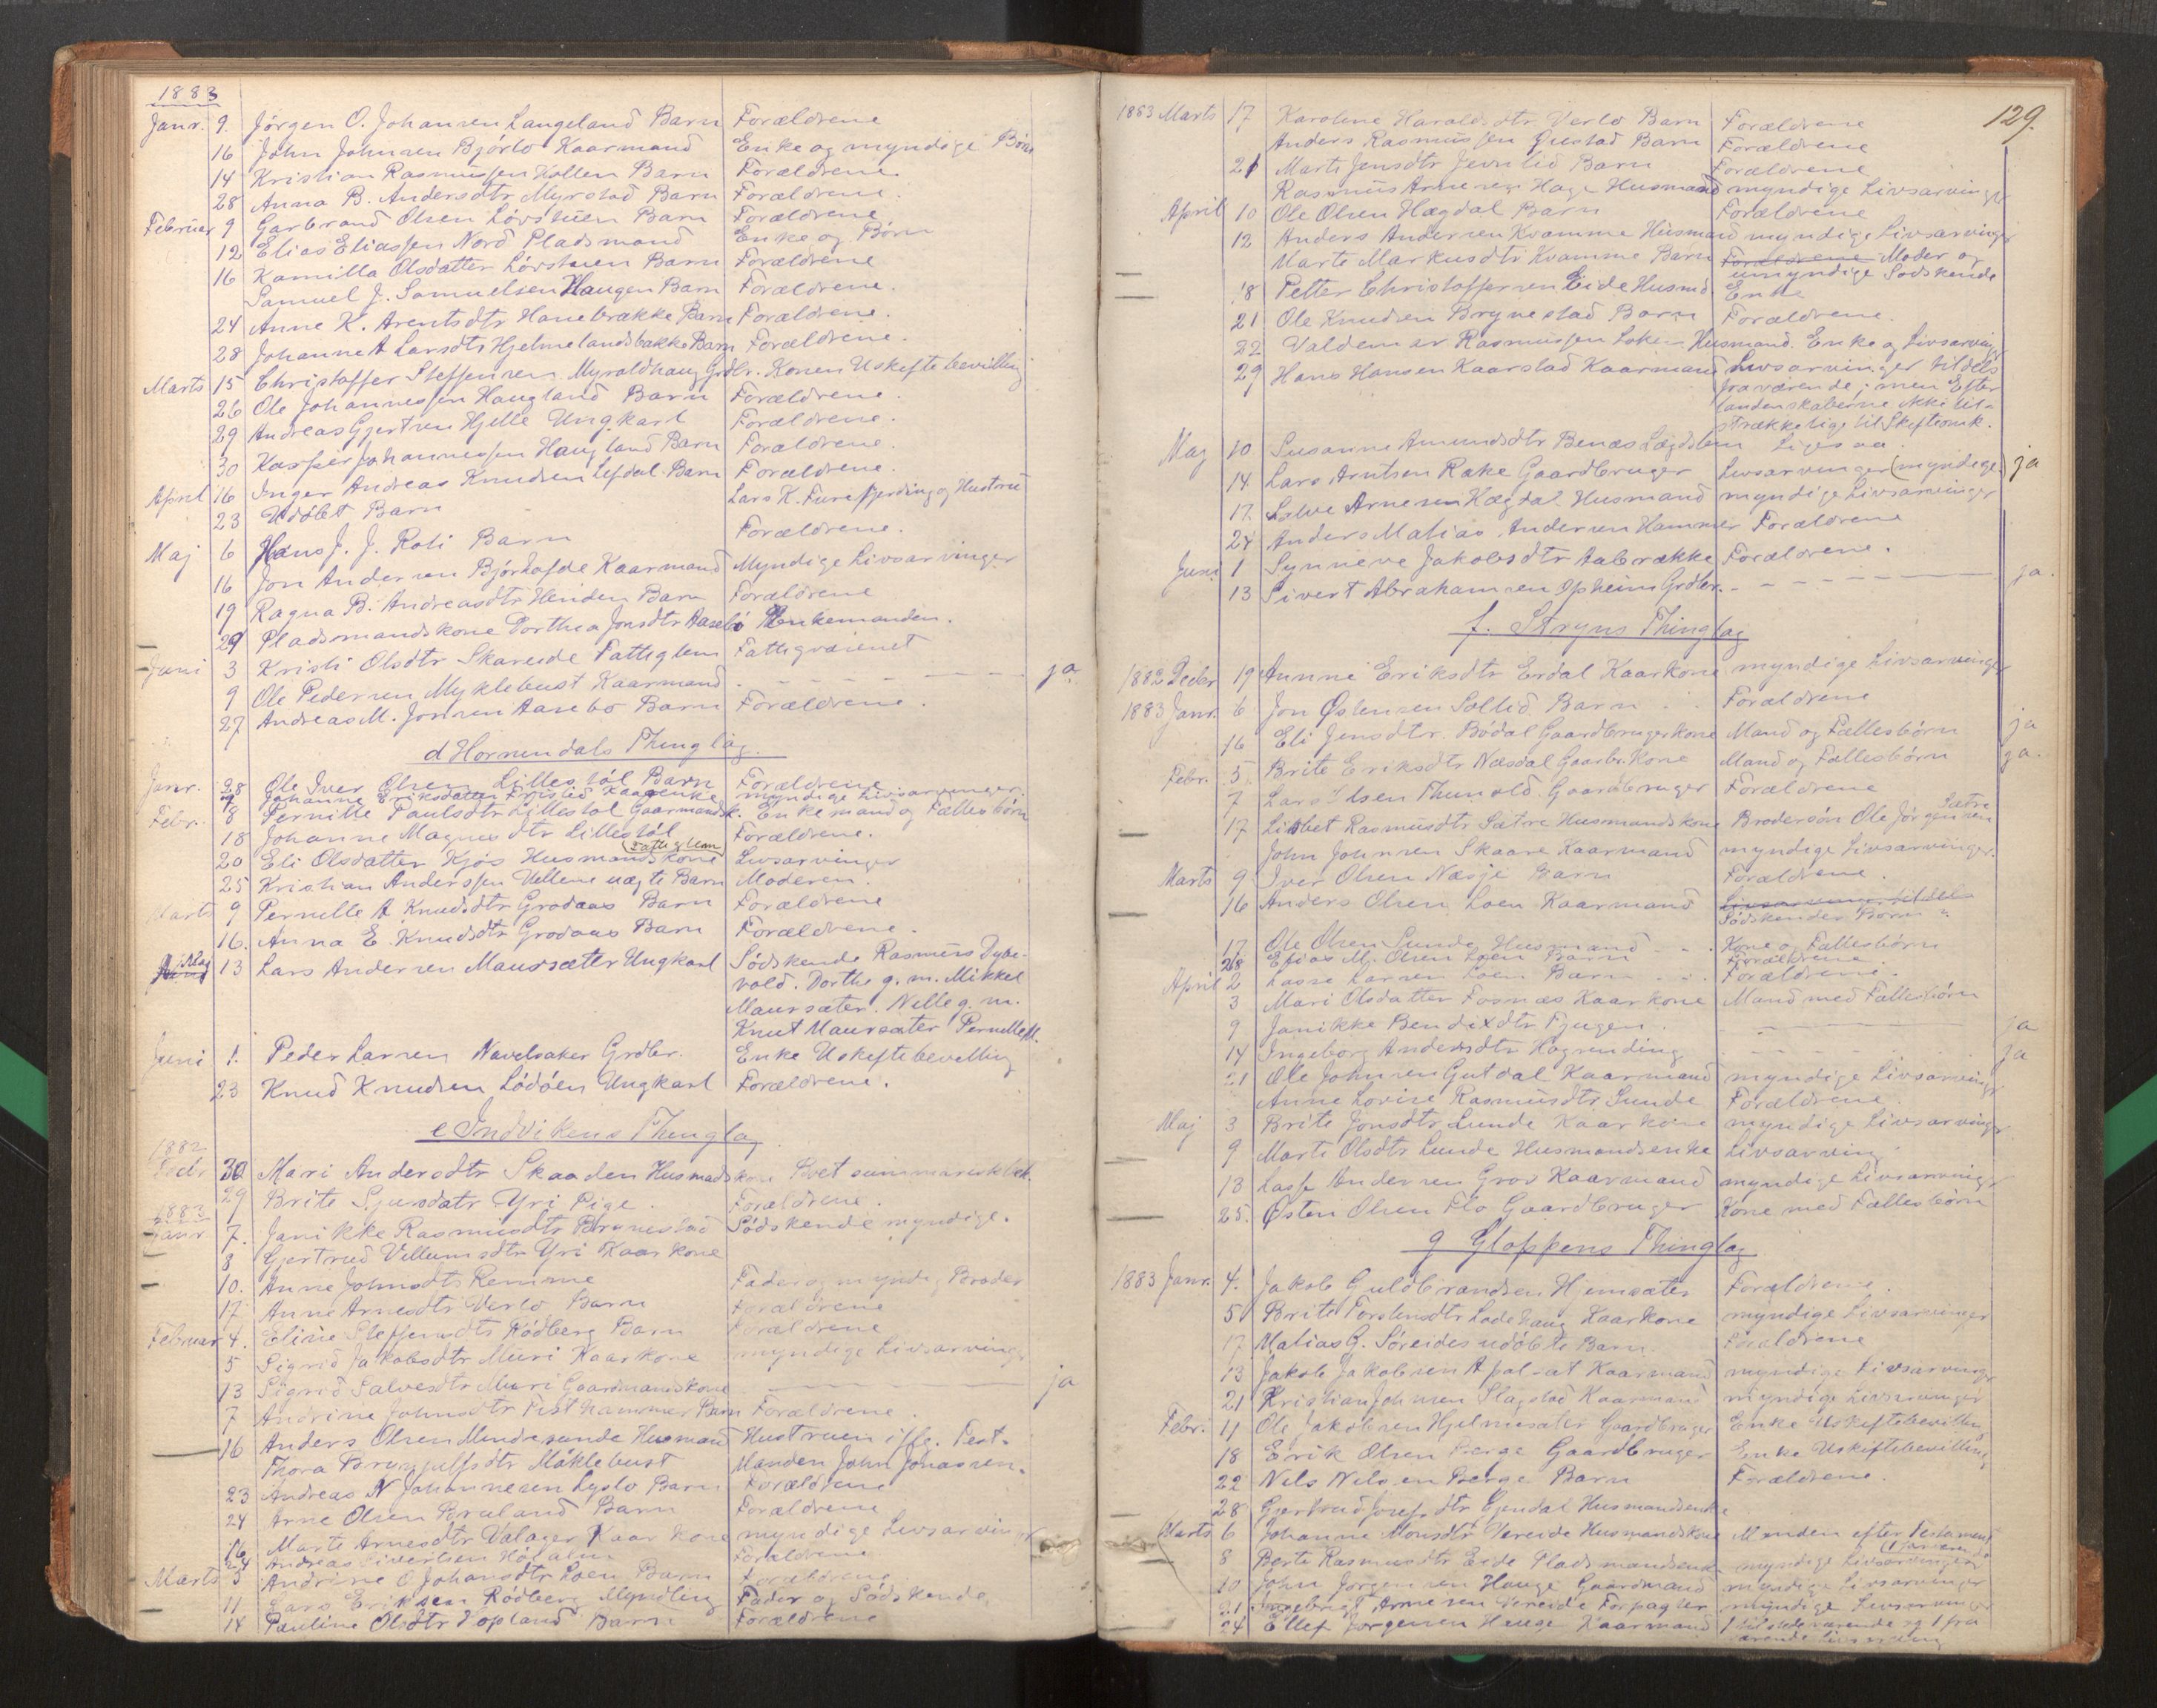 1883
Janr. 9. Jørgen O. Johansen Langeland Barn Forældrene
16 John Johnsen Bjørlo Kaarmand Enke og myndige Børn
14 Kristian Rasmussen Kollen Barn Forældrene
28 Anna B. Andersdtr Myrstad Barn Forældrene.
Februar 9 Garbrand Olsen Løvstuen Barn Forældrene
12 Elias Eliassen Nord Pladsmand Enke og Børn
16 Kamilla Olsdatter Løvstuen Barn Forældrene
Samuel J. Samuelsen Haugen Barn Forældrene.
24 Anne K. Arentsdtr Hanebrække Barn Forældrene.
28 Johanne A Larsdtr Hjelmelandsbakke Barn Forældrene.
Marts 15 Christoffer Steffensen Myroldhaug Grdbr. Konen Uskiftebevilling
26 Ole Johannessen Haugland Barn Forældrene.
29 Andreas Gjertsen Hjelle Ungkarl Forældrene.
30 Kasper Johannessen Haugland Barn Forældrene.
April 16 Inger Andreas Knudsen Lefdal Barn Forældrene.
23 Udøbt Barn Lars K. Furefjerding og Hustru
Maj 6 Hans J. J. Roti Barn Forældrene.
16 Jon Andersen Bjørhofde Kaarmand Myndige Livsarvinger
19 Ragna B. Andreasdtr Henden Barn Forældrene
29 Pladsmandskone Dorthea Jonsdtr Aasebø Enkemanden.
Juni 3 Kristi Olsdtr Skareide Fattiglem Fattigvæsenet
9 Ole Pedersen Myklebust Kaarmand - - - - - - ja
27 Andreas M. Jonsen Aasebø Barn Forældrene.
d Hornindals Thinglag.
Janr. 28 Ole Iver Olsen Lillestøl Barn Forældrene
9 Johanne Eriksdatter Frislid Kaarenke myndige Livsarvinger.
Febr. 8 Pernille Paulsdtr Lillestøl Gaarmandsk. Enkemand og Fællesbørn
18 Johanne Magnesdtr Lillestøl Forældrene.
20 Eli Olsdatter Kjøs Husmandskone (Fattiglem) Livsarvinger
25 Kristian Anderssen Vellene uægte Barn Moderen.
Marts 9 Pernille A Knudsdtr Grodaas Barn Forældrene
16. Anna E. Knudsdtr Grodaas Barn Forældrene.
Maj 13 Lars Andersen Maursæter Ungkarl Södskende Rasmus Dybe-
vold. Dorthe g. m. Mikkel
Maursæter. Nille g. m.
Knut Maursæter Pernille M.
Juni 1. Peder Larsen Navelsaker Grdbr. Enke Uskiftebevilling
23 Knud Knudsen Lødøen Ungkarl Forældrene.
e Indvikens Thinglag
1882
Decbr 30 Mari Andersdtr Skaaden Husmadskone
29 Brite Sjursdatr Yri Pige. Forældrene.
1883
Janr 7. Janikke Rasmusdtr Brynestad Södskende myndige.
8 Gjertrud Villumsdtr Yri Kaarkone
10. Anne Johnsdtr Remme Fader og myndig Broder
17 Anne Arnesdtr Verlo Barn Forældrene
Februar 4. Eline Steffensdtr Rödberg Barn Forældrene
5 Sigrid Jakobsdtr Muri Kaarkone myndige Livsarvinger
13 Sigrid Salvesdtr Muri Gaardmandskone — ja
7 Andrine Johnsdtr Tisthammer Barn Forældrene.
16 Anders Olsen Mindresunde Husmand Hustruen iflg. Test.
Thora Brynjulfsdtr Møklebust Manden John Jonassen.
23 Andreas N Johannesen Lyslo Barn Forældrene
24 Arne Olsen Bruland Barn Forældrene
16 Marte Arnesdtr Valager Kaarkone myndige Livsarvinger
24 Andreas Sivertsen Forældrene
Marts 5 Andrine O Johansdtr Loen Barn Forældrene
11 Lars Eriksen Rødberg Myndling Fader og Södskende
14 Pauline Olsdtr Fopland Barn Forældrene
129.
1883 Marts 17 Karoline Haraldsdtr Verlo Barn Forældrene
Anders Rasmussen Giestad Barn Forældrene
21 Marte Jensdtr Jevnlid Barn Forældrene
Rasmus Arnesen Hage Husmand myndige Livsarvinger
April 10 Ole Olsen Hægdal Barn Forældrene
12 Anders Andersen Kvamme Husmand myndige Livsarvinger
Marte Markusdtr Kvamme Barn Forældrene Moder og
umyndige Södskende
18 Petter Christoffersen Eide Husmd. Enke
21 Ole Knudsen Brynestad Barn Forældrene.
22 Valdemar Rasmussen Loken Husmand. Enke og Livsarving
29 Hans Hansen Kaarstad Kaarmand Livsarvinger tildels
fraværende; men Efter
ladenskaberne ikke til-
strækkelige til Skifteomk.
Maj 10. Susanne Amundsdtr Benæs Lægdslem Ligesaa.
14. Lars Arntsen Rake Gaardbruger Livsarvinger (myndige) ja
17. Salve Arnesen Hægdal Husmand myndige Livsarvinger
24 Anders Matias Andersen Hammer Forældrene
Juni 1 Synneve Jakobsdtr Aabrække Forældrene.
13 Sivert Abrahamsen Opheim Grdbr. - - - - ja.
f. Stryns Thinglag
1882 Decbr 19 Anne Eriksdtr Erdal Kaarkone myndige Livsarvinger
1883 Janr. 6 Jon Østensen Sollid Barn Forældrene
16 Eli Jensdtr. Bødal Gaardbrugerkone Mand og Fællesbörn ja
Febr. 5. Brite Eriksdtr Næsdal Gaardbr. Kone Mand og Fællesbörn ja.
7 Lars Olsen Thunold Gaardbruger Forældrene
17 Lisbet Rasmusdtr Sætre Husmandskone Brodersön Ole Jørgensen Sætre
John Johnsen Skaare Kaarmand myndige Livsarvinger.
Marts 9. Iver Olsen Næsje Barn Forældrene.
16 Anders Olsen Loen Kaarmand Livsarvinger tildels
Södskendes Börn
17 Ole Olsen Sunde Husmand Kone og Fællesbörn
28 Elias M. Olsen Loen Barn Forældrene
April 2 Lasse Larsen Loen Barn Forældrene.
3 Mari Olsdatter Fosnæs Kaarkone Mand med Fællesbörn
9 Janikke Bendixdtr Fjugen. — ja
14 Ingeborg Andersdtr Hogrending - - - ja
21 Ole Johnsen Gutdal Kaarmand myndige Livsarvinger
Anne Lovise Rasmusdtr Sunde Forældrene.
Maj 3 Brite Jonsdtr Lunde Kaarkone myndige Livsarvinger
9 Marte Olsdtr Lunde Husmandsenke Livsarving
13 Lasse Andersen Grov Kaarmand myndige Livsarvinger
25. Østen Olsen Flo Gaardbruger Kone med Fællesbörn
g Gloppens Thinglag
1883 Janr. 4. Jakob Guldbrandsen Hjemsæter Forældrene.
5 Brite Torstensdtr Lodehaug Kaarkone myndige Livsarvinger
17. Matias G. Søreides udöbte Barn Forældrene
13 Jakob Jakobsen Apalsæt Kaarmand myndige Livsarvinger
21 Kristian Johnsen Slagstad Kaarmand myndige Livsarvinger
Febr. 11 Ole Jakobsen Hjelmesæter Gaardbruger Enke Uskiftebevilling
18 Erik Olsen Berge Gaardbruger Enke Uskiftebevilling
22 Nils Nilsen Berge Barn Forældrene.
28 Gjertrud Josefsdtr Ejendal Husmandsenke
Marts 6 Johanne Monsdtr Vereide Husmandskone Manden efter Testament
8 Berte Rasmusdtr Eide Pladsmandsenke myndige Livsarvinger
10 John Jørgensen Hauge Gaardmand myndige Livsarvinger
21 Ingebrigt Arnesen Vereide Forpagter myndige Livsarvinger
24 Ellef Jørgensen Hauge Kaarmand 1 tilstedeværende og 1 fra
værende Livsarving